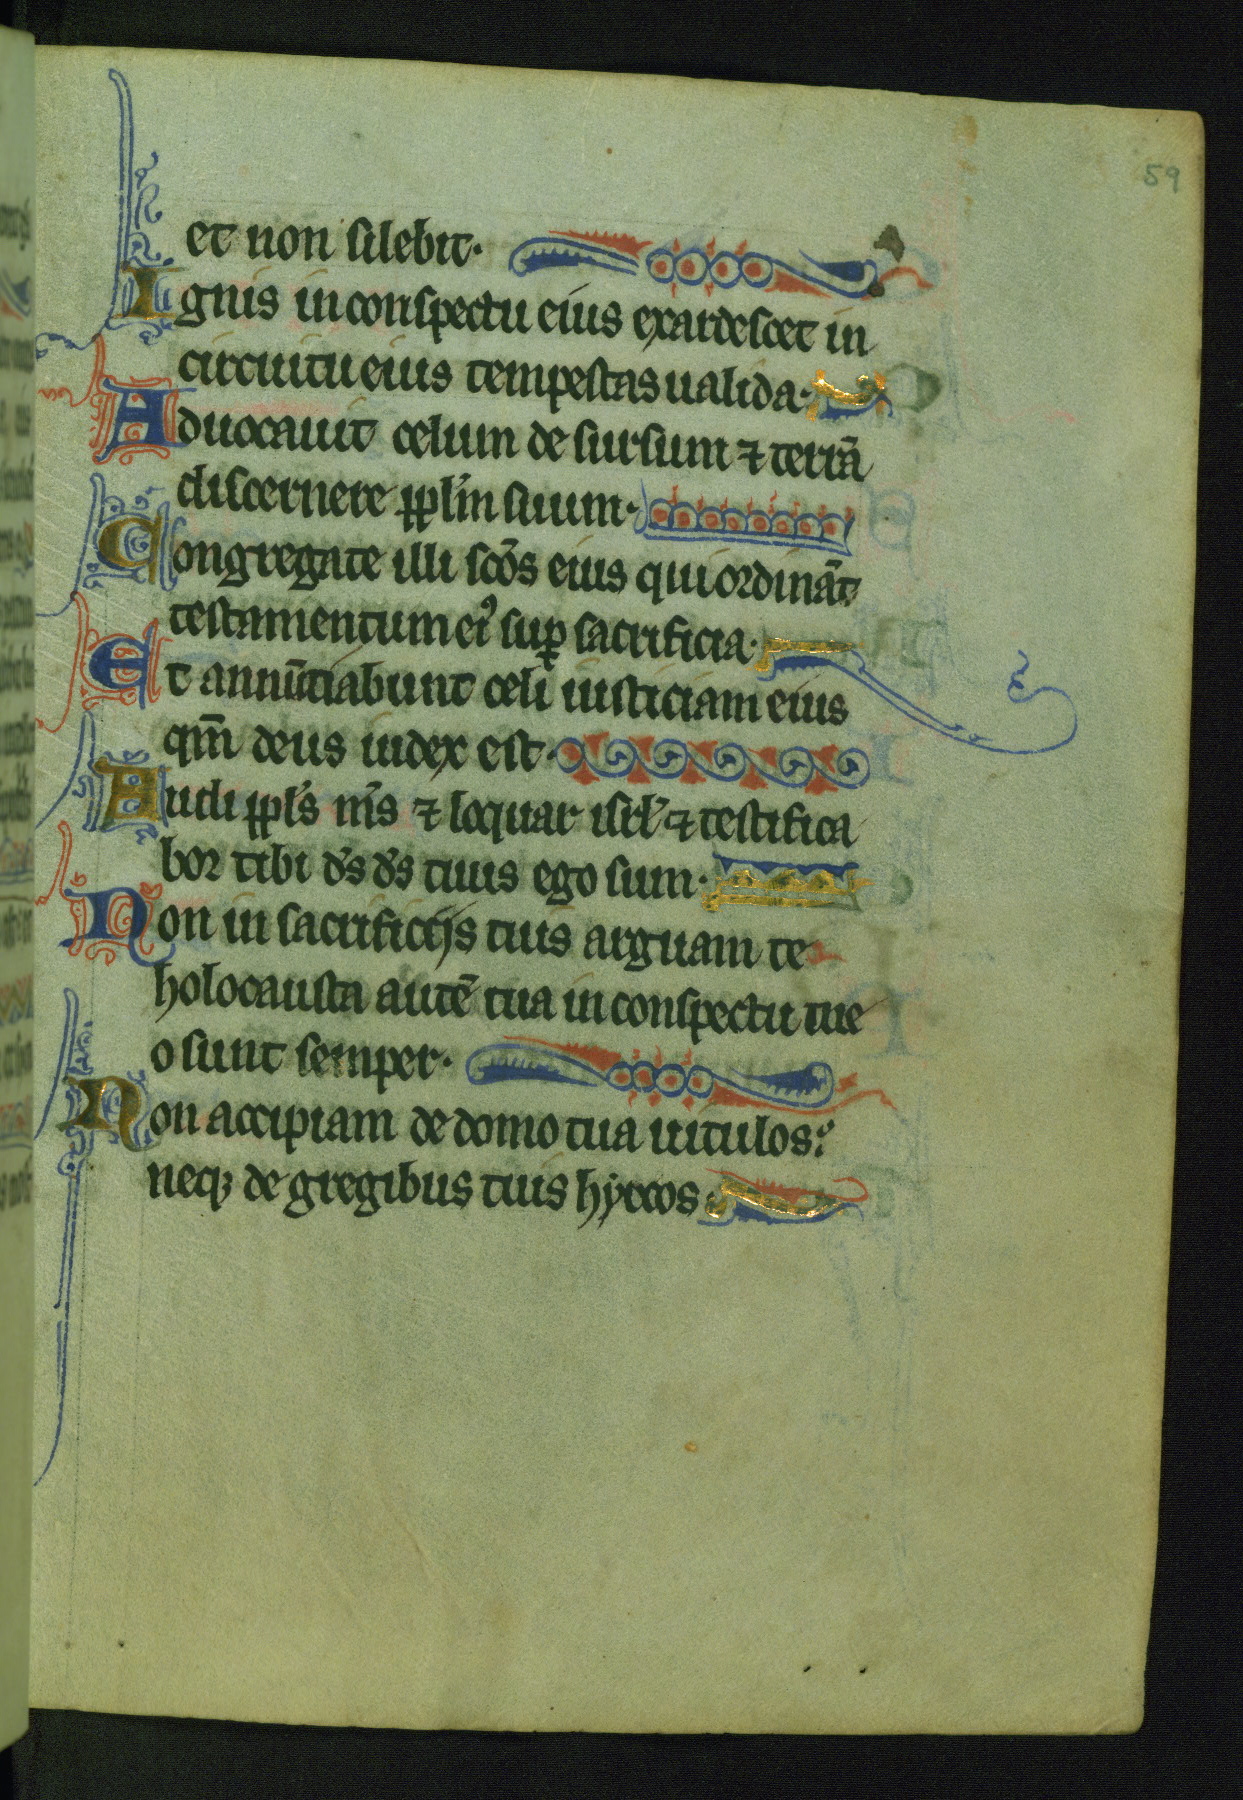 59
et non silebit·
Ignis in conspectu eius exardescet in
circuitu eius tempestas ualida·
Aduocauit celum de sursum ⁊ terrā
discernere ppl̄m suum·
Congregate illi sc̄os eius qui ordināt
testamentum eiꝰ suꝑ sacrificia·
Et annūtiabunt celi iusticiam eius
qm̄ deus iudex est·
Audi ppl̄s m̄s ⁊ loquar isrl̄ ⁊ testifica
bor tibi d̄s d̄s tuus ego sum·
Non in sacrificijs tuis arguam te
holocausta autē tua in conspectu me
o sunt semper·
Non accipiam de domo tua uitulos:
neqꝫ de gregibus tuis hẏrcos·